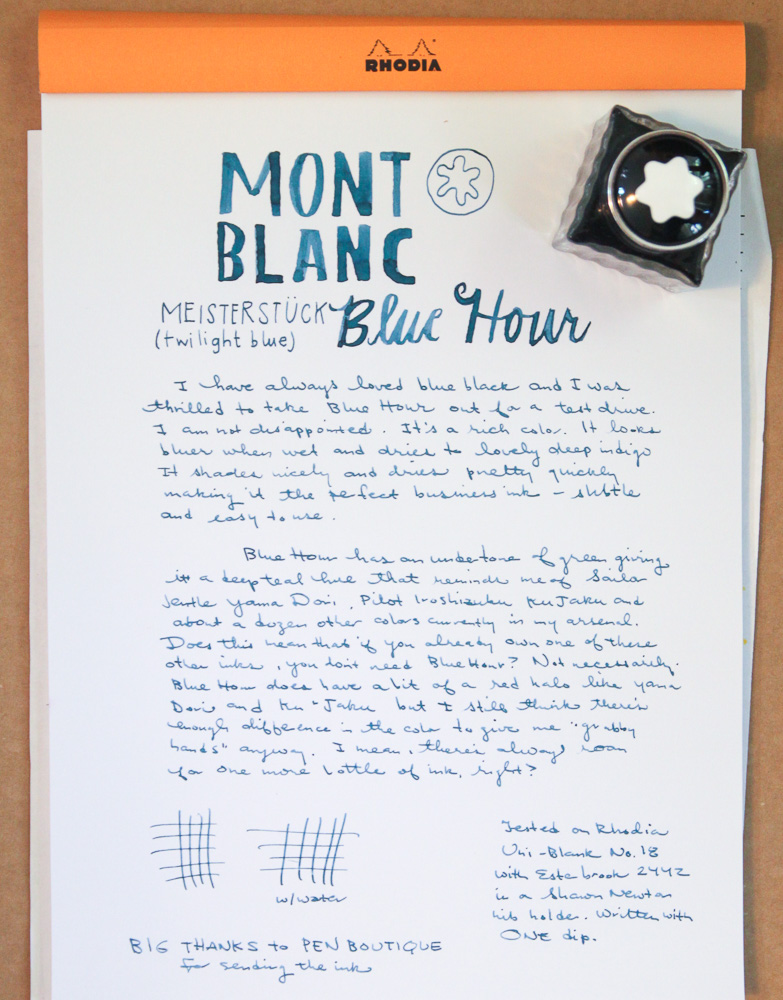 RHODIA
MONT
BLANC
MEISTERSTÜCK Blue Hour
(twilight blue)
I have always loved blue black and I was
thrilled to take Blue Hour out for a test drive.
I am not disappointed. It's a rich color. It looks
bluer when wet and dries to lovely deep indigo
It shades nicely and dries pretty quickly
making it the perfect business ink – subtle
and easy to use.
Blue Hour has an undertone of green giving
it a deep teal hue that reminds me of Sailor
Jentle Yama Dori, Pilot Iroshizuku Ku Jaku and
about a dozen other colors currently in my arsenal.
Does this mean that if you already own one of these
other inks, you don't need Blue Hour? Not necessarily.
Blue Hour does have a bit of a red halo like Yama
Dori and Ku-Jaku but I still think there's
enough difference in the color to give me "grabby
hands" anyway. I mean, there's always room
for one more bottle of ink, right?
w/water
Tested on Rhodia
Uni-Blank No. 18
with Esterbrook 2442
in a Shawn Newton
nib holder. Written with
ONE dip.
BIG THANKS to PEN BOUTIQUE
for sending the ink